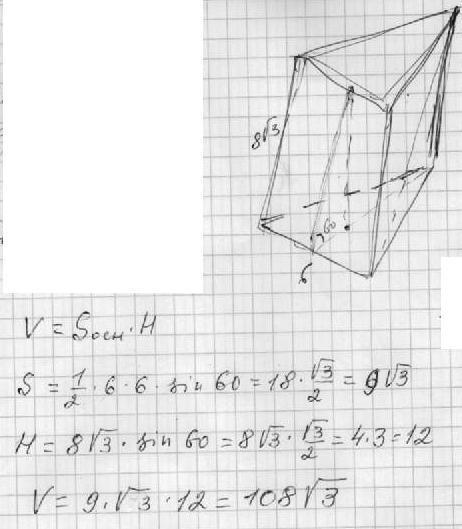 8√3
60
6
V = Sосн · H
S = 1/2 · 6 · 6 · sin 60 = 18 · √3/2 = 9√3
H = 8√3 · sin 60 = 8√3 · √3/2 = 4·3 = 12
V = 9·√3 · 12 = 108√3